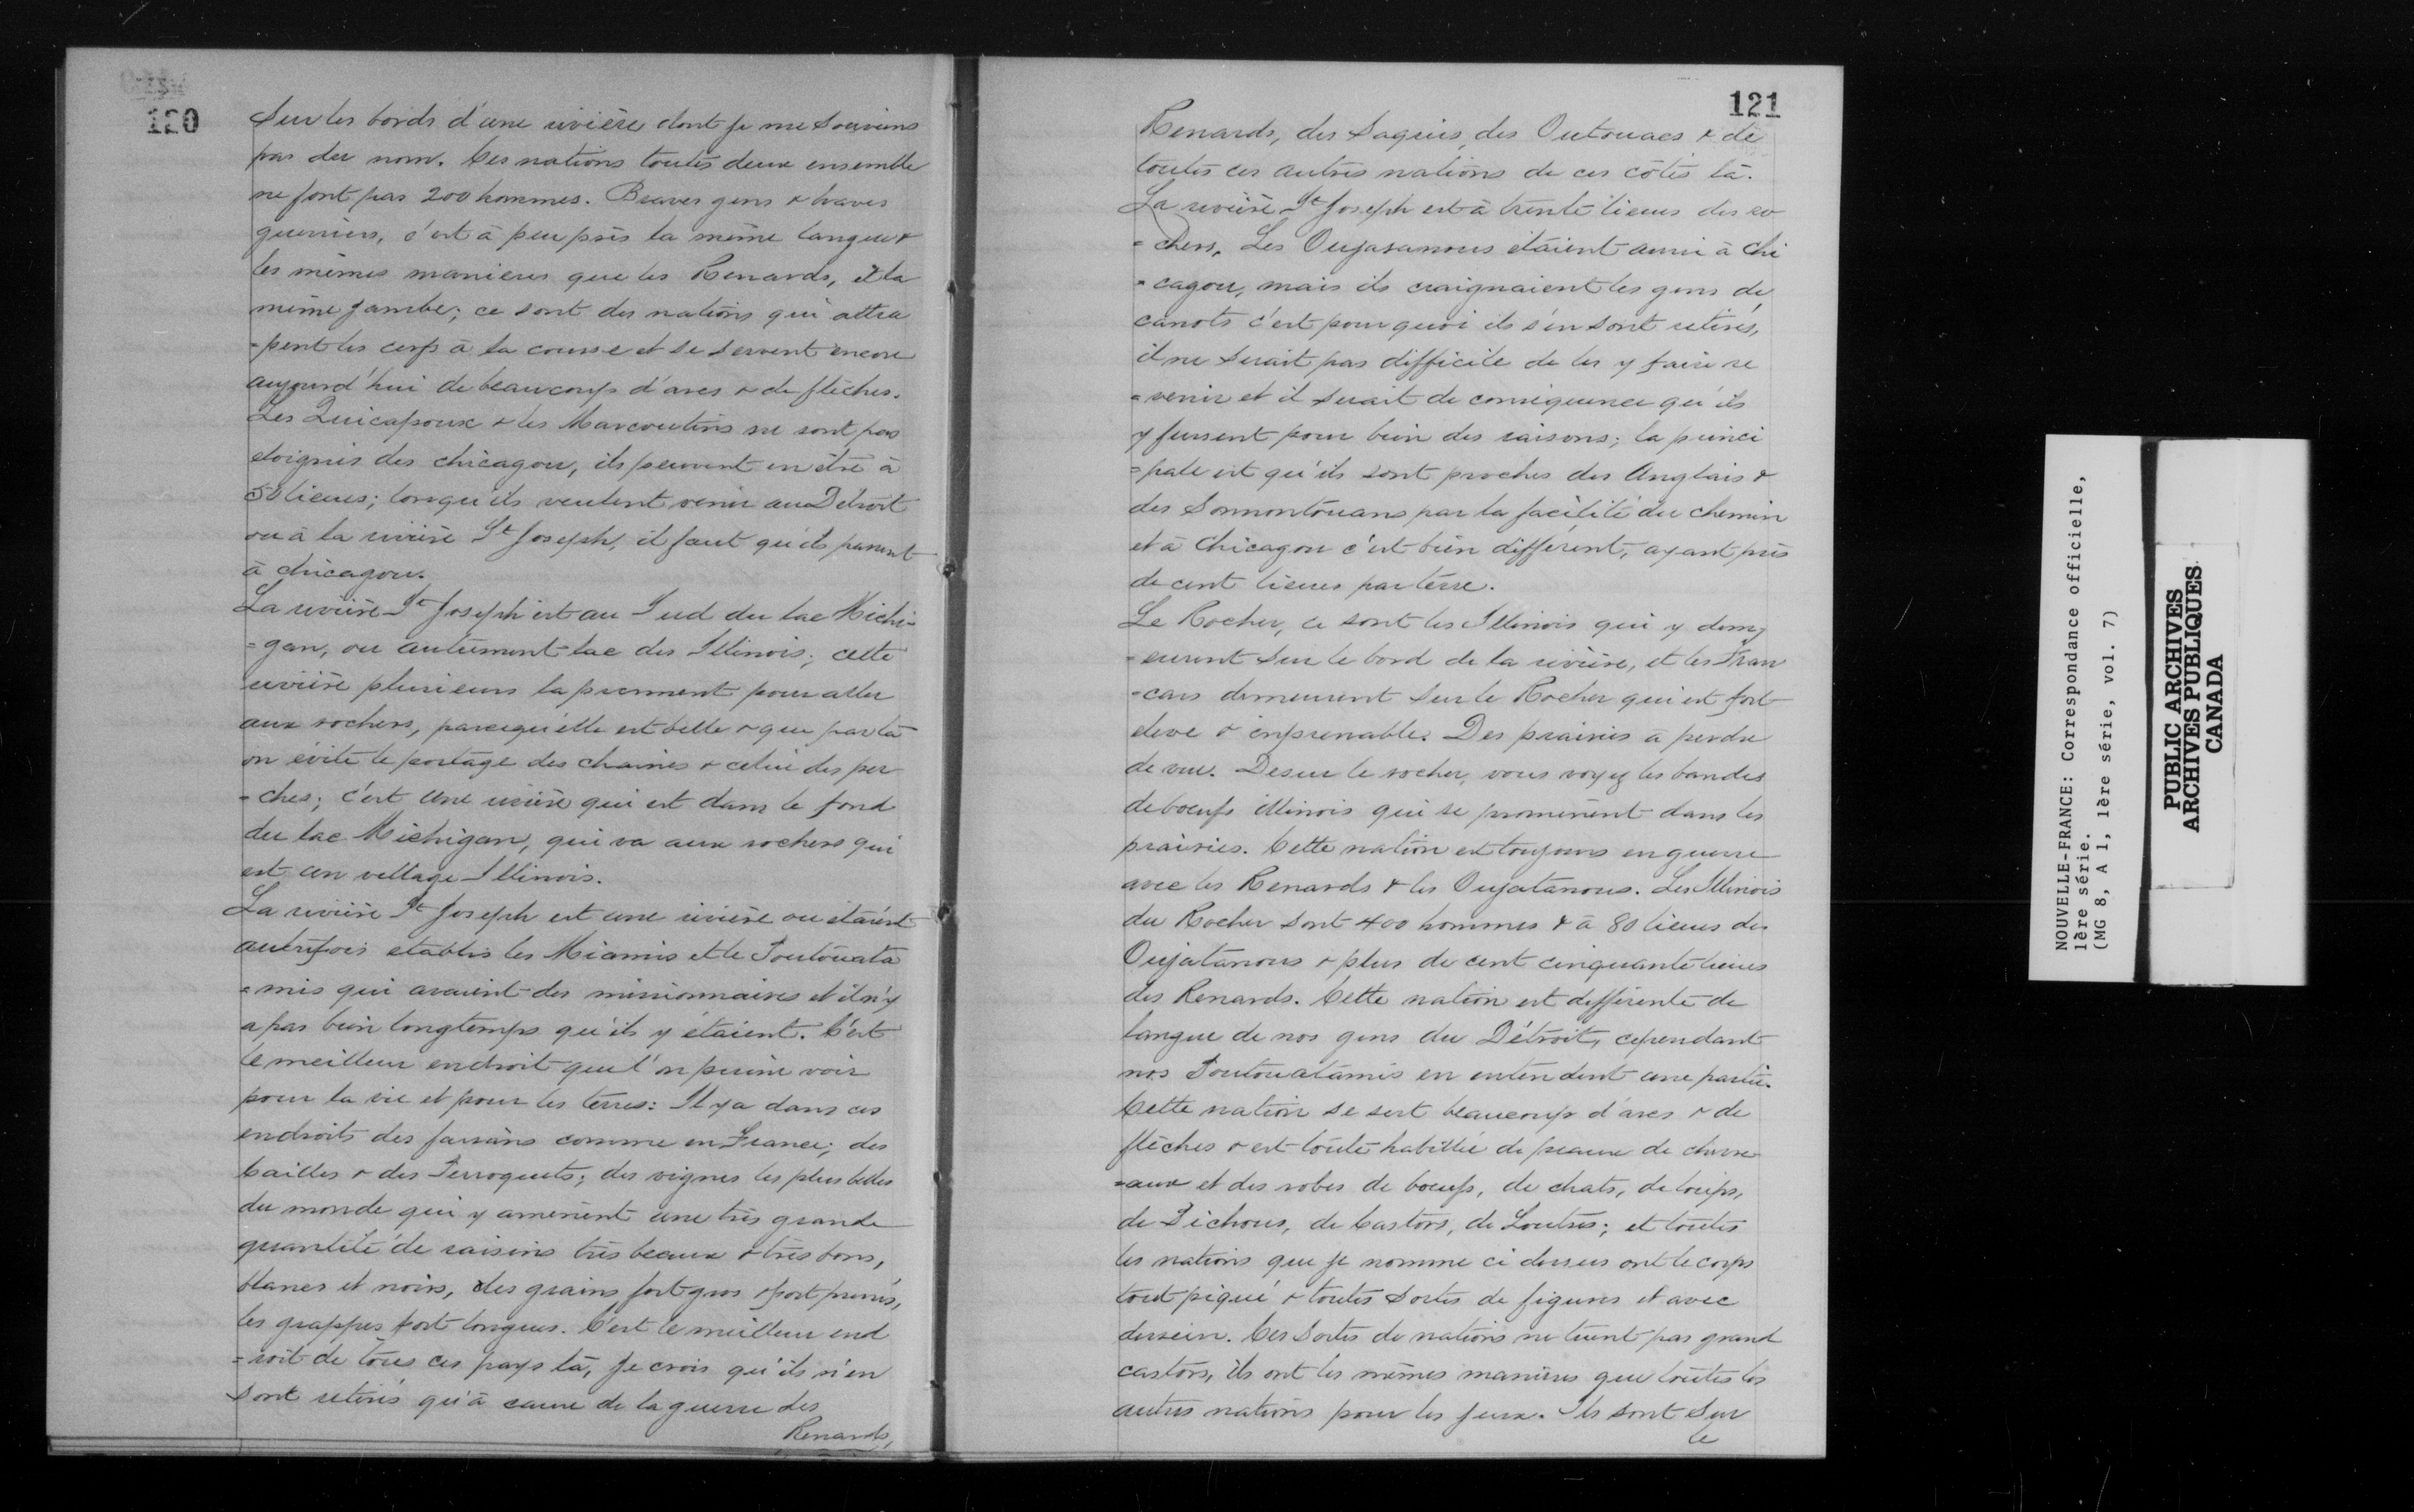 120
Sur les bords d'une rivière dont je me souviens
pas du nom. Ces nations toutes deux ensemble
ne font pas 200 hommes. Braves gens & braves
guerriers, c'est à peu près la même langue &
les mêmes manieres que les Renards, et la
même jambe; ce sont des nations qui attra
=pent les cerfs à la course et se servent encore
aujourd'hui de beaucoup d'arcs & de flèches.
Les Quicapoux & les Marcoutins ne sont pas
eloignés des chicagou, ils peuvent en être à
50 lieues; lorsqu'ils veulent venir au Détroit
ou à la rivière St Joseph, il faut qu'ils passent
à chicagou.
La rivière St Joseph est au Sud du lac Michi-
=gan, ou autrement lac des Illinois; cette
rivière plusieurs la prennent pour aller
aux rochers, parcequ'elle est belle & que par là
on évite le portage des chaines & celui des per
=ches; c'est une rivière qui est dans le fond
du lac Michigan, qui va aux rochers qui
est un village Illinois.
La rivière St Joseph est une rivière ou étaient
autrefois etablis les Miamis et le Poutouata
=mis qui avaient des missionnaires et il n'y
a pas bien longtemps qu'ils y étaient. C'est
le meilleur endroit que l'on puisse voir
pour la vie et pour les terres: Il y a dans ces
endroits des faisans comme en France; des
Cailles & des Perroquets; des vignes les plus belles
du monde qui y amènent une très grande
quantité de raisins très beaux & très bons,
blancs et noirs, des grains fort gros & fort pressés,
les grappes fort longues. C'est le meilleur end
=roit de tous ces pays là, Je crois qu'ils n'en
sont retirés qu'à cause de la guerre des
Renards,
121
Renards, des Saquis, des Outouacs & de
toutes ces autres nations de ces côtés là.
La rivière St Joseph est à trente lieues des ro
=chers, Les Oujasanous étaient aussi à Chi
=cagou, mais ils craignaient les gens de
canots c'est pourquoi ils s'en sont retirés,
il ne serait pas difficile de les y faire re
=venir et il serait de conséquence qu'ils
y fussent pour bien des raisons; la princi
=pale est qu'ils sont proches des Anglais &
des Sonnontouans par la facilité du chemin
et à Chicagou c'est bien différent, ayant près
de cent lieues par terre.
Le Rocher, ce sont les Illinois qui y dem
=eurent sur le bord de la rivière, et les Fran
=cais demeurent sur le Rocher qui est fort
eleve & inprenable. Des prairies à perdre
de vue. Desur le rocher, vous voyez les bandes
de boeufs illinois qui se promènent dans les
prairies. Cette nation est toujours en guerre
avec les Renards & les Oujatanous. Les Illinois
du Rocher sont 400 hommes & à 80 lieues des
Oujatanous & plus de cent cinquante lieues
des Renards. Cette nation est différente de
langue de nos gens du Détroit, cependant
nos Poutouatamis en entendent une partie.
Cette nation se sert beaucoup d'arcs & de
flèches & est toute habillée de peaux de chevre
=aux et des robes de boeufs, de chats, de loups,
de Pichous, de Castors, de Loutres; et toutes
les nations que je nomme ci dessus ont le corps
tout piqué & toutes sortes de figures et avec
dessein. Ces sortes de nations ne tuent pas grand
castors, ils ont les mêmes manières que toutes les
autres nations pour les jeux. Ils sont sur
le
NOUVELLE-FRANCE: Correspondance officielle,
1ère série.
(MG 8, A 1, 1ère série, vol. 7)
PUBLIC ARCHIVES
ARCHIVES PUBLIQUES
CANADA